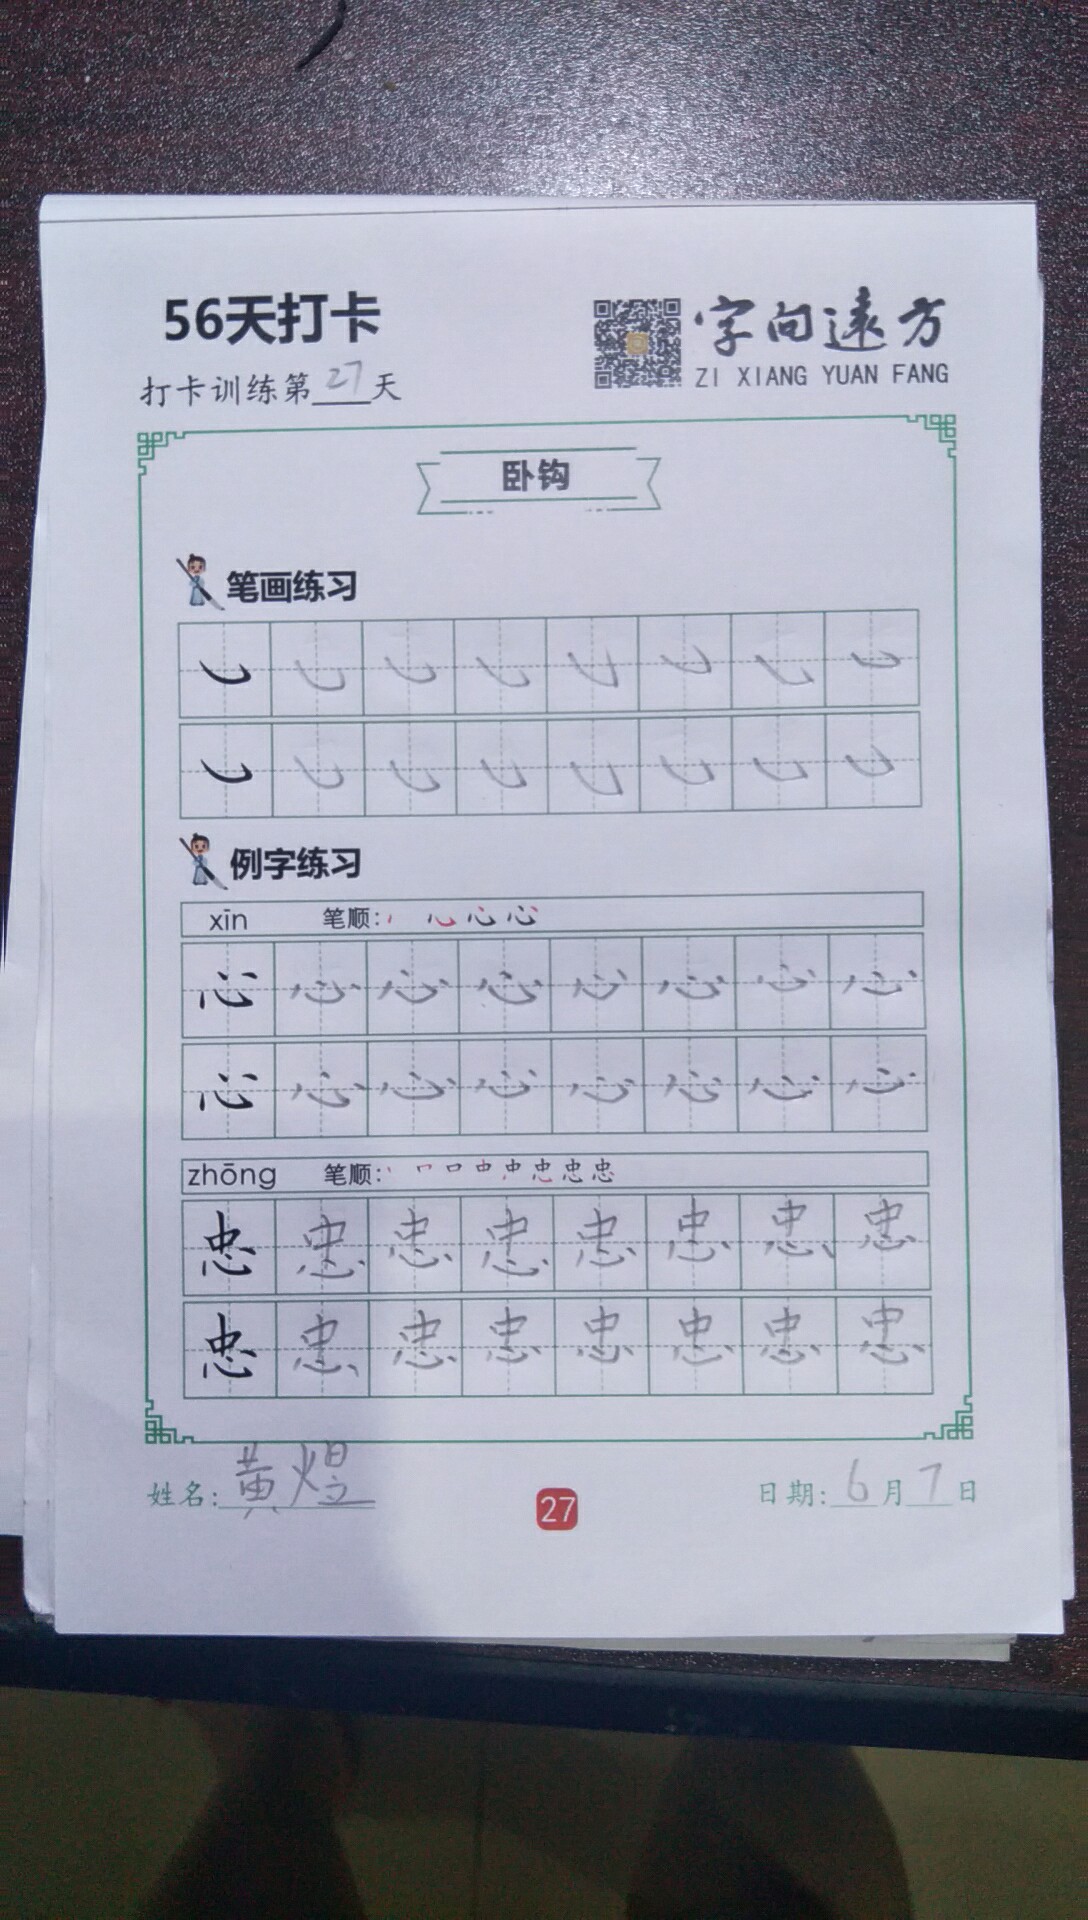 56天打卡
字向远方
打卡训练第27天
ZI XIANG YUAN FANG
卧钩
笔画练习
例字练习
xīn 笔顺:
心 心 心 心 心 心 心 心
心 心 心 心 心 心 心 心
zhōng 笔顺:
忠 忠 忠 忠 忠 忠 忠 忠
忠 忠 忠 忠 忠 忠 忠 忠
姓名:黄煜 27 日期:6月7日